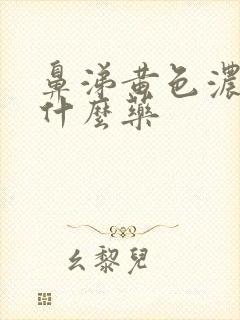 鼻涕黄色濃
什麼藥
幺黎兒